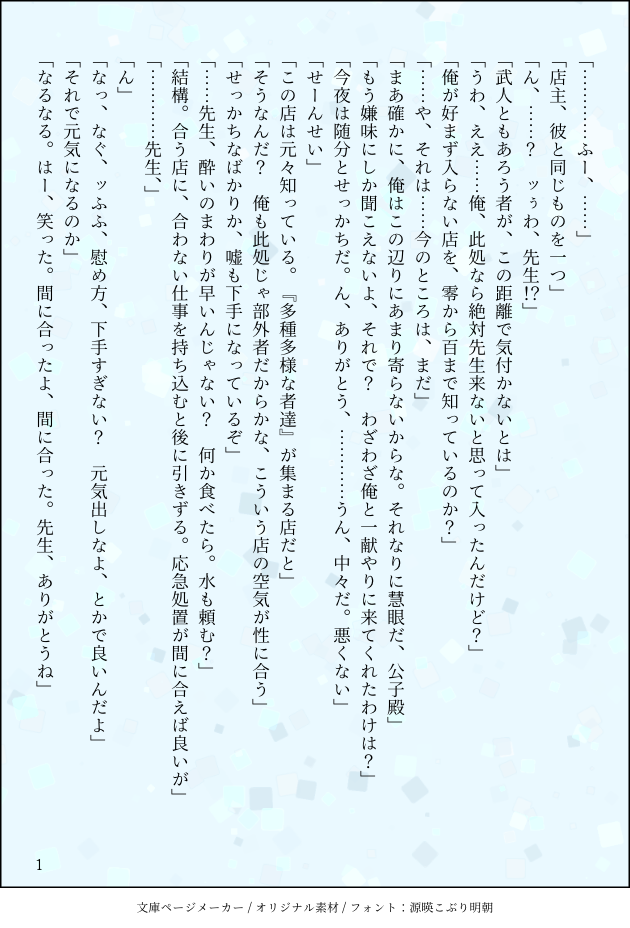 「…………ふー、……」
「店主、彼と同じものを一つ」
「ん、……？　ッぅわ、先生!?」
「武人ともあろう者が、この距離で気付かないとは」
「うわ、ええ……俺、此処なら絶対先生来ないと思って入ったんだけど？」
「俺が好まず入らない店を、零から百まで知っているのか？」
「……や、それは……今のところは、まだ」
「まあ確かに、俺はこの辺りにあまり寄らないからな。それなりに慧眼だ、公子殿」
「もう嫌味にしか聞こえないよ、それで？　わざわざ俺と一献やりに来てくれたわけは？」
「今夜は随分とせっかちだ。ん、ありがとう、…………うん、中々だ。悪くない」
「せーんせい」
「この店は元々知っている。『多種多様な者達』が集まる店だと」
「そうなんだ？　俺も此処じゃ部外者だからかな、こういう店の空気が性に合う」
「せっかちなばかりか、嘘も下手になっているぞ」
「……先生、酔いのまわりが早いんじゃない？　何か食べたら。水も頼む？」
「結構。合う店に、合わない仕事を持ち込むと後に引きずる。応急処置が間に合えば良いが」
「…………先生、」
「ん」
「なっ、なぐ、ッふふ、慰め方、下手すぎない？　元気出しなよ、とかで良いんだよ」
「それで元気になるのか」
「なるなる。はー、笑った。間に合ったよ、間に合った。先生、ありがとうね」
1
文庫ページメーカー / オリジナル素材 / フォント：源暎こぶり明朝